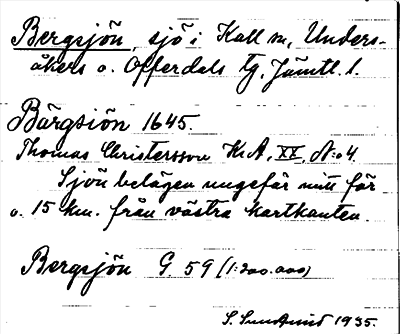 Bergsjön, sjö i Kall sn, Unders-
åkers o. Offerdals tg, Jämtl. l.
Bärgsiön 1645.
Thomas Christersson K.A, XX, N:o 4.
Sjön belägen ungefär mitt för
o. 15 km. från västra kartkanten.
Bergsjön G. 59 (1:200.000)
S. 1935.